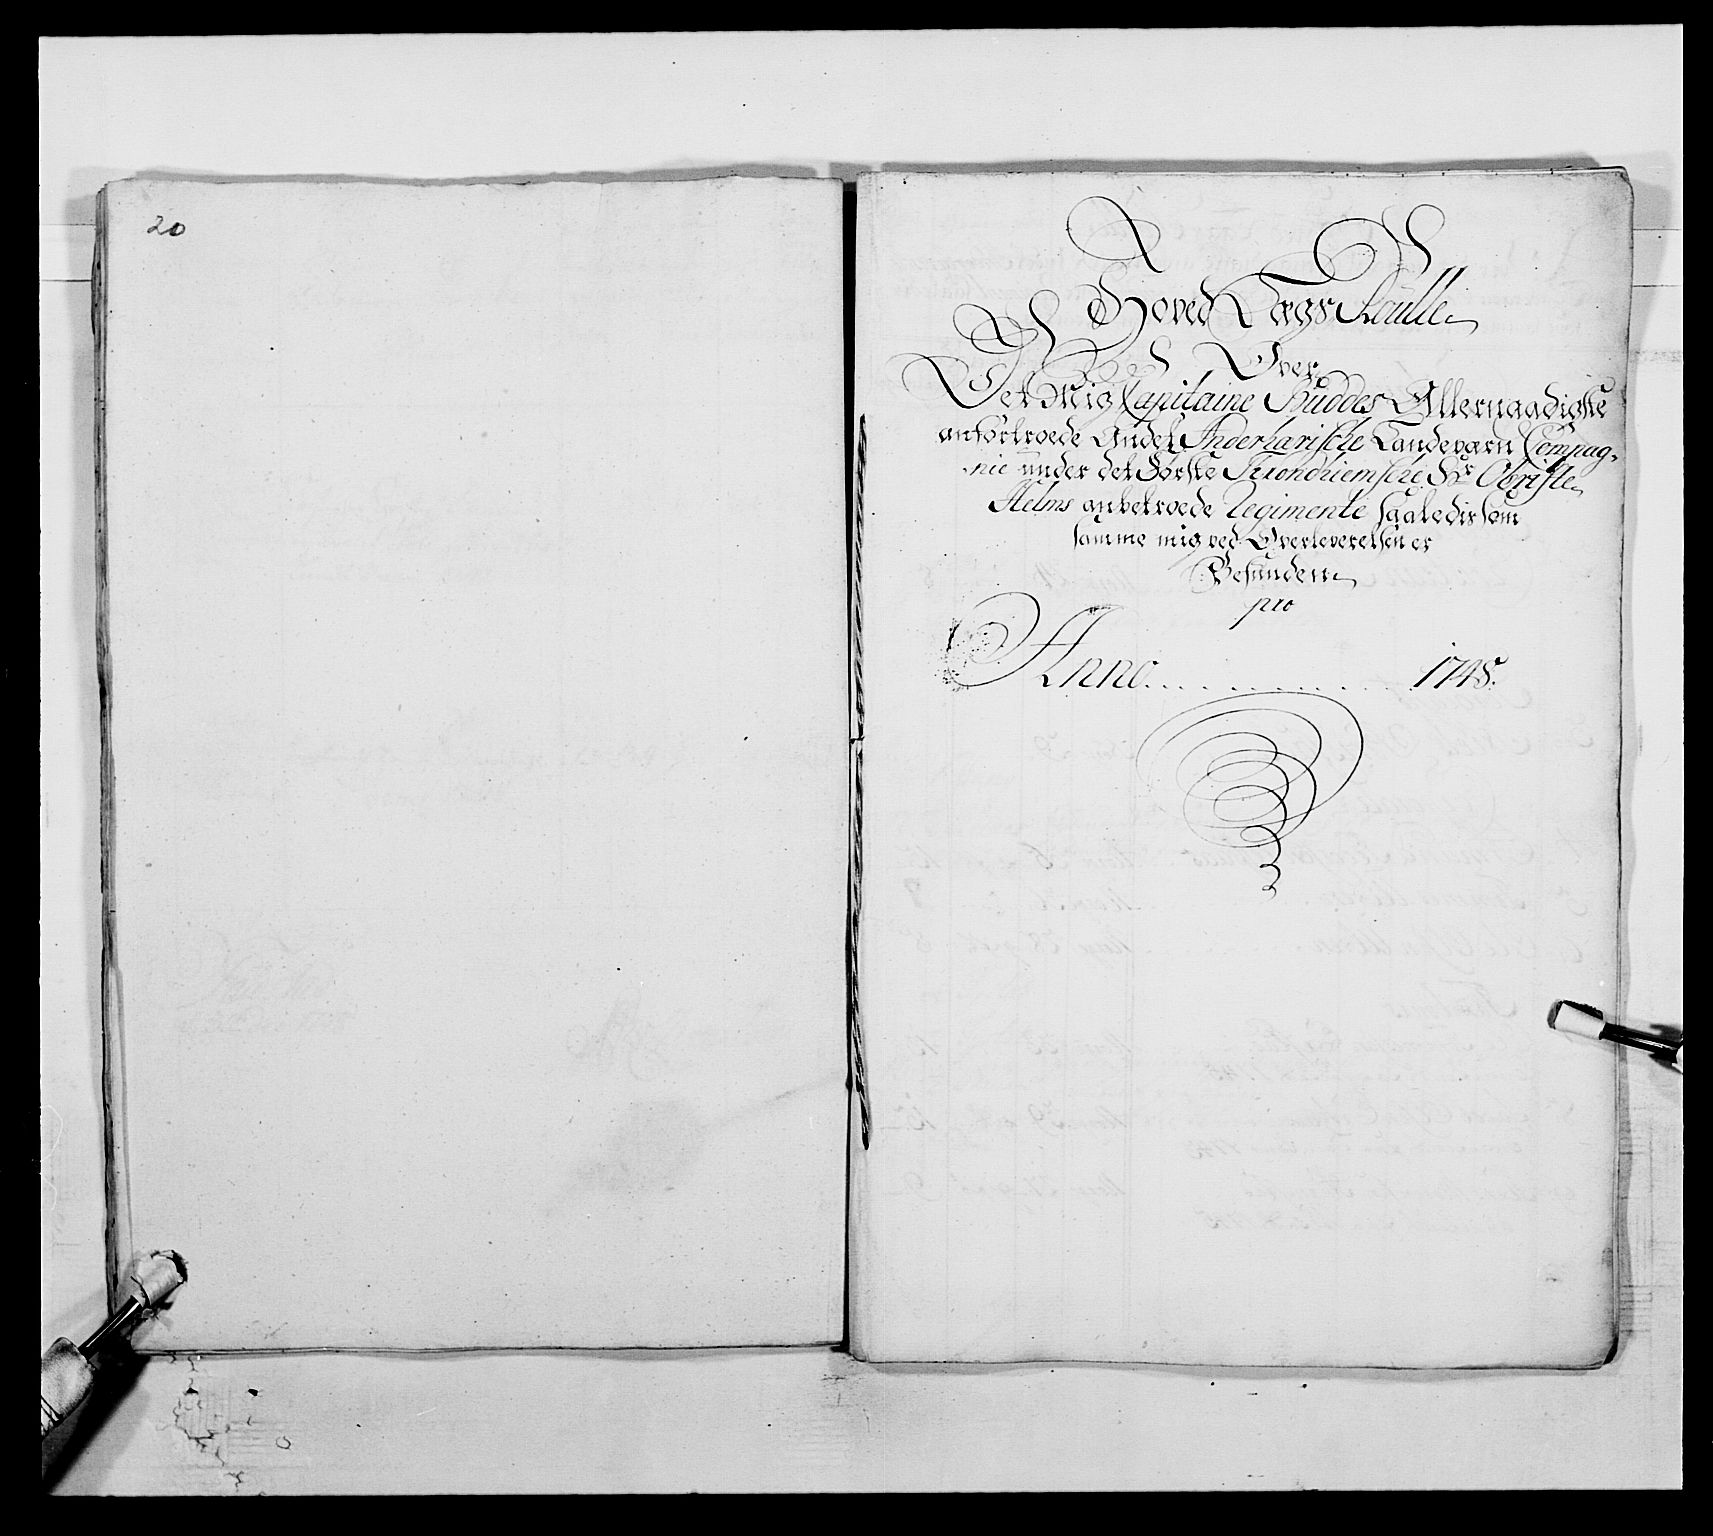 20
Hoved Lægs Roulle
Over
Det Mig Capitaine Buddes Allernaadigste
anfortroede Andel Inderharische Landeværn Compag-
nie under det Første Trondhiemsche Hr Obriste
Helms anbetroede Regimente saaledis som
samme mig ved Overleverelsen er
Befunden
pro
Anno . . . . . . . . . 1748.